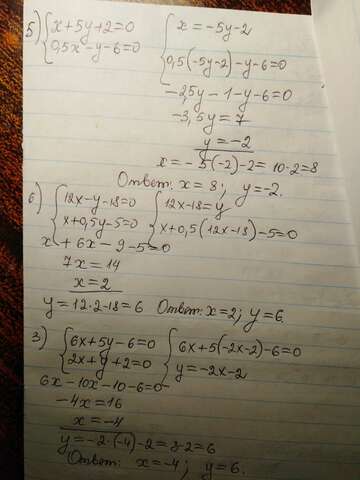 5) { x+5y+2=0 { x=-5y-2
0,5x-y-6=0 0,5(-5y-2)-y-6=0
-2,5y-1-y-6=0
-3,5y=7
y=-2
x=-5(-2)-2=10-2=8
Ответ: x=8; y=-2.
6) { 12x-y-18=0 { 12x-18=y
x+0,5y-5=0 x+0,5(12x-18)-5=0
x+6x-9-5=0
7x=14
x=2
y=12·2-18=6 Ответ: x=2; y=6.
3) { 6x+5y-6=0 { 6x+5(-2x-2)-6=0
2x+y+2=0 y=-2x-2
6x-10x-10-6=0
-4x=16
x=-4
y=-2·(-4)-2=8-2=6
Ответ: x=-4; y=6.